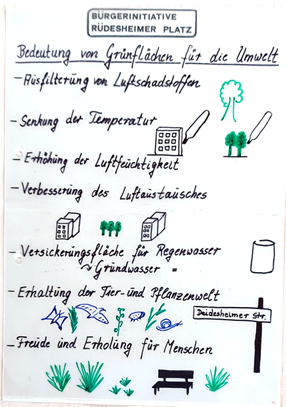 BÜRGERINITIATIVE
RÜDESHEIMER PLATZ
Bedeutung von Grünflächen für die Umwelt
- Ausfilterung von Luftschadstoffen
- Senkung der Temperatur
- Erhöhung der Luftfeuchtigkeit
- Verbesserung des Luftaustausches
- Versickerungsfläche für Regenwasser
↳ Grundwasser =
- Erhaltung der Tier- und Pflanzenwelt
Deidesheimer Str.
- Freude und Erholung für Menschen